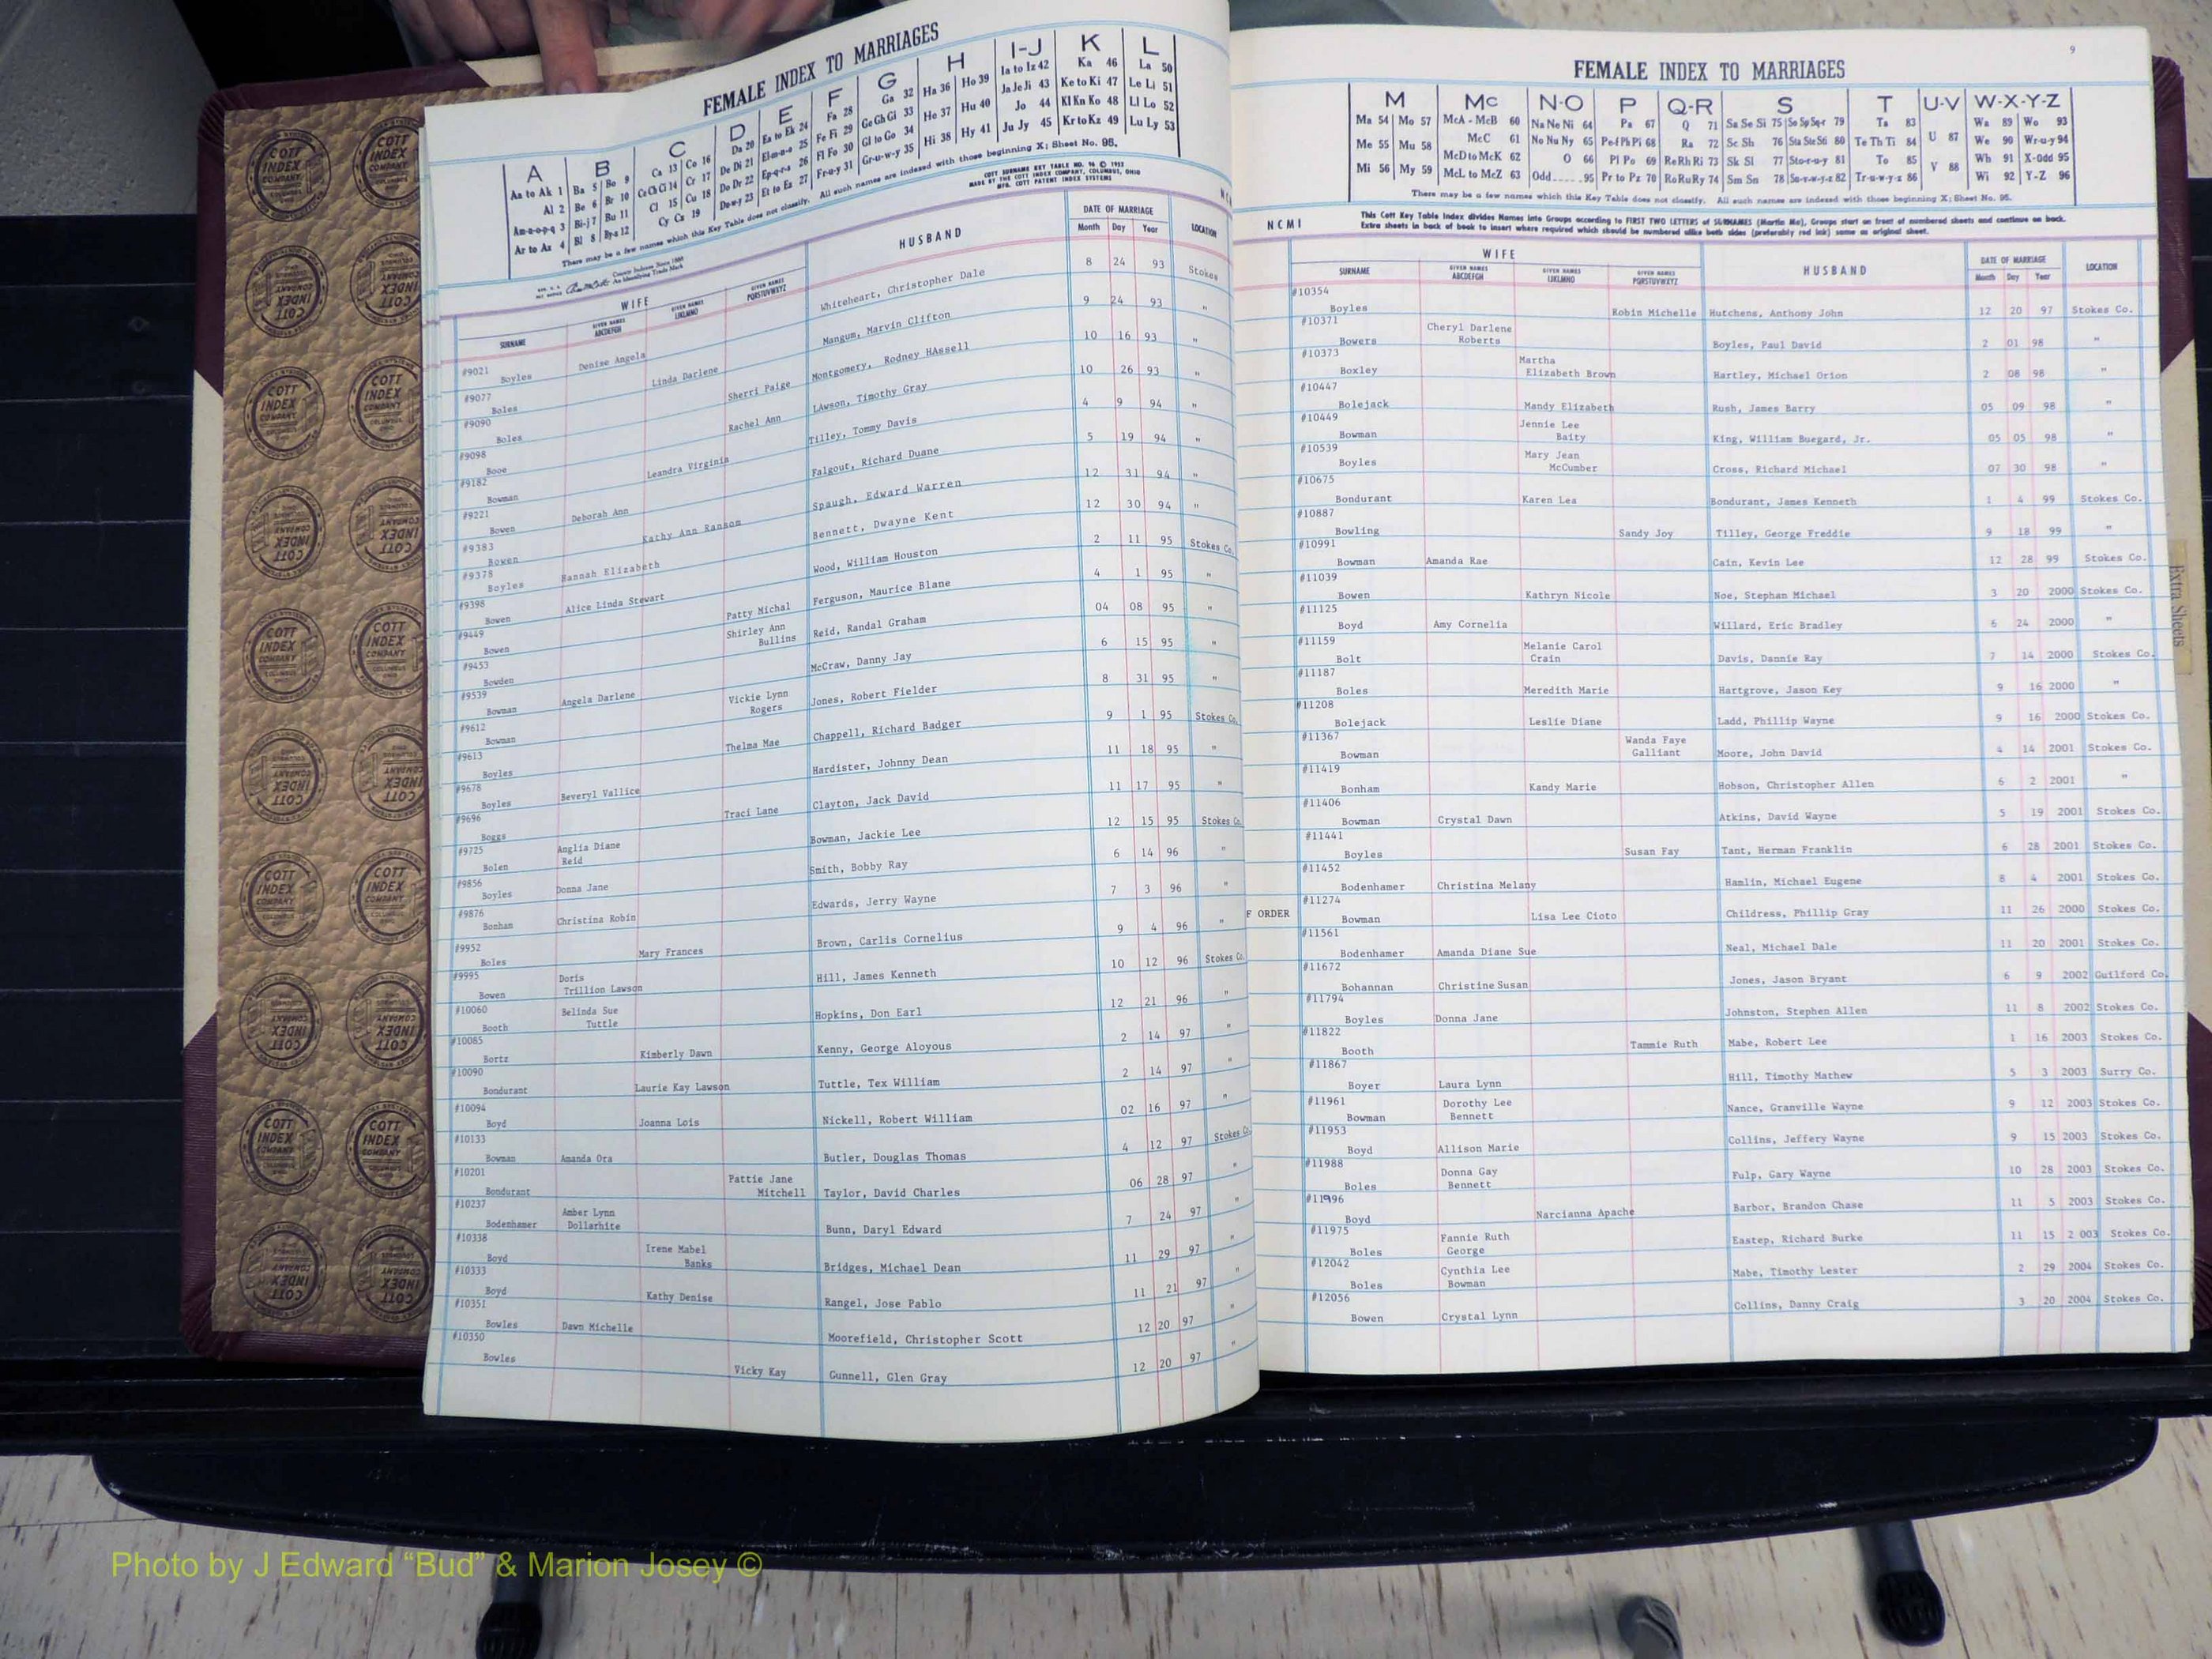 FEMALE INDEX TO MARRIAGES
A B C D E F G H I-J K L
Aa to Ak 1 Ba 5 Bo 9 Ca 13 Co 16 Da 20 Ea to Ek 24 Fa 28 Ga 32 Ha 36 Ho 39 Ia to Iz 42 Ka 46 La 50
Al 2 Be 6 Br 10 Ce Ch Ci 14 Cr 17 De Di 21 El-m-n-o 25 Fe Fi 29 Ge Gh Gi 33 He 37 Hu 40 Ja Je Ji 43 Ke to Ki 47 Le Li 51
Am-n-o-p-q 3 Bi-j 7 Bu 11 Cl 15 Cu 18 Do Dr 22 Ep-q-r-s 26 Fl Fo 30 Gl to Go 34 Hi 38 Hy 41 Jo 44 Kl Kn Ko 48 Ll Lo 52
Ar to Az 4 Bl 8 By-z 12 Cy Cz 19 Du-w-y 23 Et to Ez 27 Fr-u-y 31 Gr-u-w-y 35 Ju Jy 45 Kr to Kz 49 Lu Ly 53
There may be a few names which this Key Table does not classify. All such names are indexed with those beginning X; Sheet No. 95.
COTT SURNAME KEY TABLE NO. 96 © 1953
MADE BY THE COTT INDEX COMPANY, COLUMBUS, OHIO
MFG. COTT PATENT INDEX SYSTEMS
County Indexes Since 1888
An Identifying Trade Mark
WIFE HUSBAND DATE OF MARRIAGE LOCATION
SURNAME GIVEN NAMES ABCDEFGH GIVEN NAMES IJKLMNO GIVEN NAMES PQRSTUVWXYZ Month Day Year
#9021 Boyles Denise Angela Whiteheart, Christopher Dale 8 24 93 Stokes
#9077 Boles Linda Darlene Mangum, Marvin Clifton 9 24 93 "
#9090 Boles Sherri Paige Montgomery, Rodney HAssell 10 16 93 "
#9098 Booe Rachel Ann LAwson, Timothy Gray 10 26 93 "
#9182 Bowman Leandra Virginia Tilley, Tommy Davis 4 9 94 "
#9221 Bowen Deborah Ann Falgout, Richard Duane 5 19 94 "
#9383 Bowen Kathy Ann Ransom Spaugh, Edward Warren 12 31 94 "
#9378 Boyles Hannah Elizabeth Bennett, Dwayne Kent 12 30 94 "
#9398 Bowen Alice Linda Stewart Wood, William Houston 2 11 95 Stokes Co.
#9449 Bowen Patty Michal Ferguson, Maurice Blane 4 1 95 "
#9453 Bowden Shirley Ann Bullins Reid, Randal Graham 04 08 95 "
#9539 Bowman Angela Darlene McCraw, Danny Jay 6 15 95 "
#9612 Bowman Vickie Lynn Rogers Jones, Robert Fielder 8 31 95 "
#9613 Boyles Thelma Mae Chappell, Richard Badger 9 1 95 Stokes Co.
#9678 Boyles Beveryl Vallice Hardister, Johnny Dean 11 18 95 "
#9696 Boggs Traci Lane Clayton, Jack David 11 17 95 "
#9725 Bolen Anglia Diane Reid Bowman, Jackie Lee 12 15 95 Stokes Co.
#9856 Boyles Donna Jane Smith, Bobby Ray 6 14 96 "
#9876 Bonham Christina Robin Edwards, Jerry Wayne 7 3 96 "
#9952 Boles Mary Frances Brown, Carlis Cornelius 9 4 96 "
#9995 Bowen Doris Trillion Lawson Hill, James Kenneth 10 12 96 Stokes Co.
#10060 Booth Belinda Sue Tuttle Hopkins, Don Earl 12 21 96 "
#10085 Bortz Kimberly Dawn Kenny, George Aloyous 2 14 97 "
#10090 Bondurant Laurie Kay Lawson Tuttle, Tex William 2 14 97 "
#10094 Boyd Joanna Lois Nickell, Robert William 02 16 97 "
#10133 Bowman Amanda Ora Butler, Douglas Thomas 4 12 97 Stokes Co.
#10201 Bondurant Pattie Jane Mitchell Taylor, David Charles 06 28 97 "
#10237 Bodenhamer Amber Lynn Dollarhite Bunn, Daryl Edward 7 24 97 "
#10338 Boyd Irene Mabel Banks Bridges, Michael Dean 11 29 97 "
#10333 Boyd Kathy Denise Rangel, Jose Pablo 11 21 97 "
#10351 Bowles Dawn Michelle Moorefield, Christopher Scott 12 20 97 "
#10350 Bowles Vicky Kay Gunnell, Glen Gray 12 20 97 "
9
FEMALE INDEX TO MARRIAGES
M Mc N-O P Q-R S T U-V W-X-Y-Z
Ma 54 Mo 57 McA - McB 60 Na Ne Ni 64 Pa 67 Q 71 Sa Se Si 75 So Sp Sq-r 79 Ta 83 U 87 Wa 89 Wo 93
Me 55 Mu 58 McC 61 No Nu Ny 65 Pe-f Ph Pi 68 Ra 72 Sc Sh 76 Sta Ste Sti 80 Te Th Ti 84 V 88 We 90 Wr-u-y 94
McD to McK 62 O 66 Pl Po 69 Re Rh Ri 73 Sk Sl 77 Sto-r-u-y 81 To 85 Wh 91 X-Odd 95
Mi 56 My 59 McL to McZ 63 Odd 95 Pr to Pz 70 Ro Ru Ry 74 Sm Sn 78 Su-v-w-y-z 82 Tr-u-w-y-z 86 Wi 92 Y-Z 96
There may be a few names which this Key Table does not classify. All such names are indexed with those beginning X; Sheet No. 95.
NCMI This Cott Key Table Index divides Names into Groups according to FIRST TWO LETTERS of SURNAMES (Martin Ma), Groups start on front of numbered sheets and continue on back.
Extra sheets in back of book to insert where required which should be numbered alike both sides (preferably red ink) same as original sheet.
WIFE HUSBAND DATE OF MARRIAGE LOCATION
SURNAME GIVEN NAMES ABCDEFGH GIVEN NAMES IJKLMNO GIVEN NAMES PQRSTUVWXYZ Month Day Year
#10354 Boyles Robin Michelle Hutchens, Anthony John 12 20 97 Stokes Co.
#10371 Bowers Cheryl Darlene Roberts Boyles, Paul David 2 01 98 "
#10373 Boxley Martha Elizabeth Brown Hartley, Michael Orion 2 08 98 "
#10447 Bolejack Mandy Elizabeth Rush, James Barry 05 09 98 "
#10449 Bowman Jennie Lee Baity King, William Buegard, Jr. 05 05 98 "
#10539 Boyles Mary Jean McCumber Cross, Richard Michael 07 30 98 "
#10675 Bondurant Karen Lea Bondurant, James Kenneth 1 4 99 Stokes Co.
#10887 Bowling Sandy Joy Tilley, George Freddie 9 18 99 "
#10991 Bowman Amanda Rae Cain, Kevin Lee 12 28 99 Stokes Co.
#11039 Bowen Kathryn Nicole Noe, Stephan Michael 3 20 2000 Stokes Co.
#11125 Boyd Amy Cornelia Willard, Eric Bradley 6 24 2000 "
#11159 Bolt Melanie Carol Crain Davis, Dannie Ray 7 14 2000 Stokes Co.
#11187 Boles Meredith Marie Hartgrove, Jason Key 9 16 2000 "
#11208 Bolejack Leslie Diane Ladd, Phillip Wayne 9 16 2000 Stokes Co.
#11367 Bowman Wanda Faye Galliant Moore, John David 4 14 2001 Stokes Co.
#11419 Bonham Kandy Marie Hobson, Christopher Allen 6 2 2001 "
#11406 Bowman Crystal Dawn Atkins, David Wayne 5 19 2001 Stokes Co.
#11441 Boyles Susan Fay Tant, Herman Franklin 6 28 2001 Stokes Co.
#11452 Bodenhamer Christina Melany Hamlin, Michael Eugene 8 4 2001 Stokes Co.
F ORDER #11274 Bowman Lisa Lee Cioto Childress, Phillip Gray 11 26 2000 Stokes Co.
#11561 Bodenhamer Amanda Diane Sue Neal, Michael Dale 11 20 2001 Stokes Co.
#11672 Bohannan Christine Susan Jones, Jason Bryant 6 9 2002 Guilford Co.
#11794 Boyles Donna Jane Johnston, Stephen Allen 11 8 2002 Stokes Co.
#11822 Booth Tammie Ruth Mabe, Robert Lee 1 16 2003 Stokes Co.
#11867 Boyer Laura Lynn Hill, Timothy Mathew 5 3 2003 Surry Co.
#11961 Bowman Dorothy Lee Bennett Nance, Granville Wayne 9 12 2003 Stokes Co.
#11953 Boyd Allison Marie Collins, Jeffery Wayne 9 15 2003 Stokes Co.
#11988 Boles Donna Gay Bennett Fulp, Gary Wayne 10 28 2003 Stokes Co.
#11996 Boyd Narcianna Apache Barbor, Brandon Chase 11 5 2003 Stokes Co.
#11975 Boles Fannie Ruth George Eastep, Richard Burke 11 15 2 003 Stokes Co.
#12042 Boles Cynthia Lee Bowman Mabe, Timothy Lester 2 29 2004 Stokes Co.
#12056 Bowen Crystal Lynn Collins, Danny Craig 3 20 2004 Stokes Co.
Extra Sheets
COTT INDEX COMPANY COLUMBUS OHIO
Photo by J Edward “Bud” & Marion Josey ©